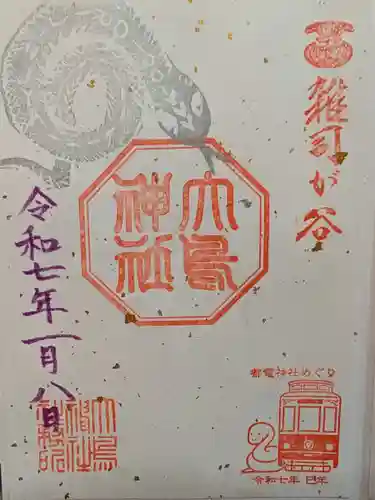 雑司が谷
大鳥
神社
令和七年一月八日
都電神社めぐり
令和七年 巳年